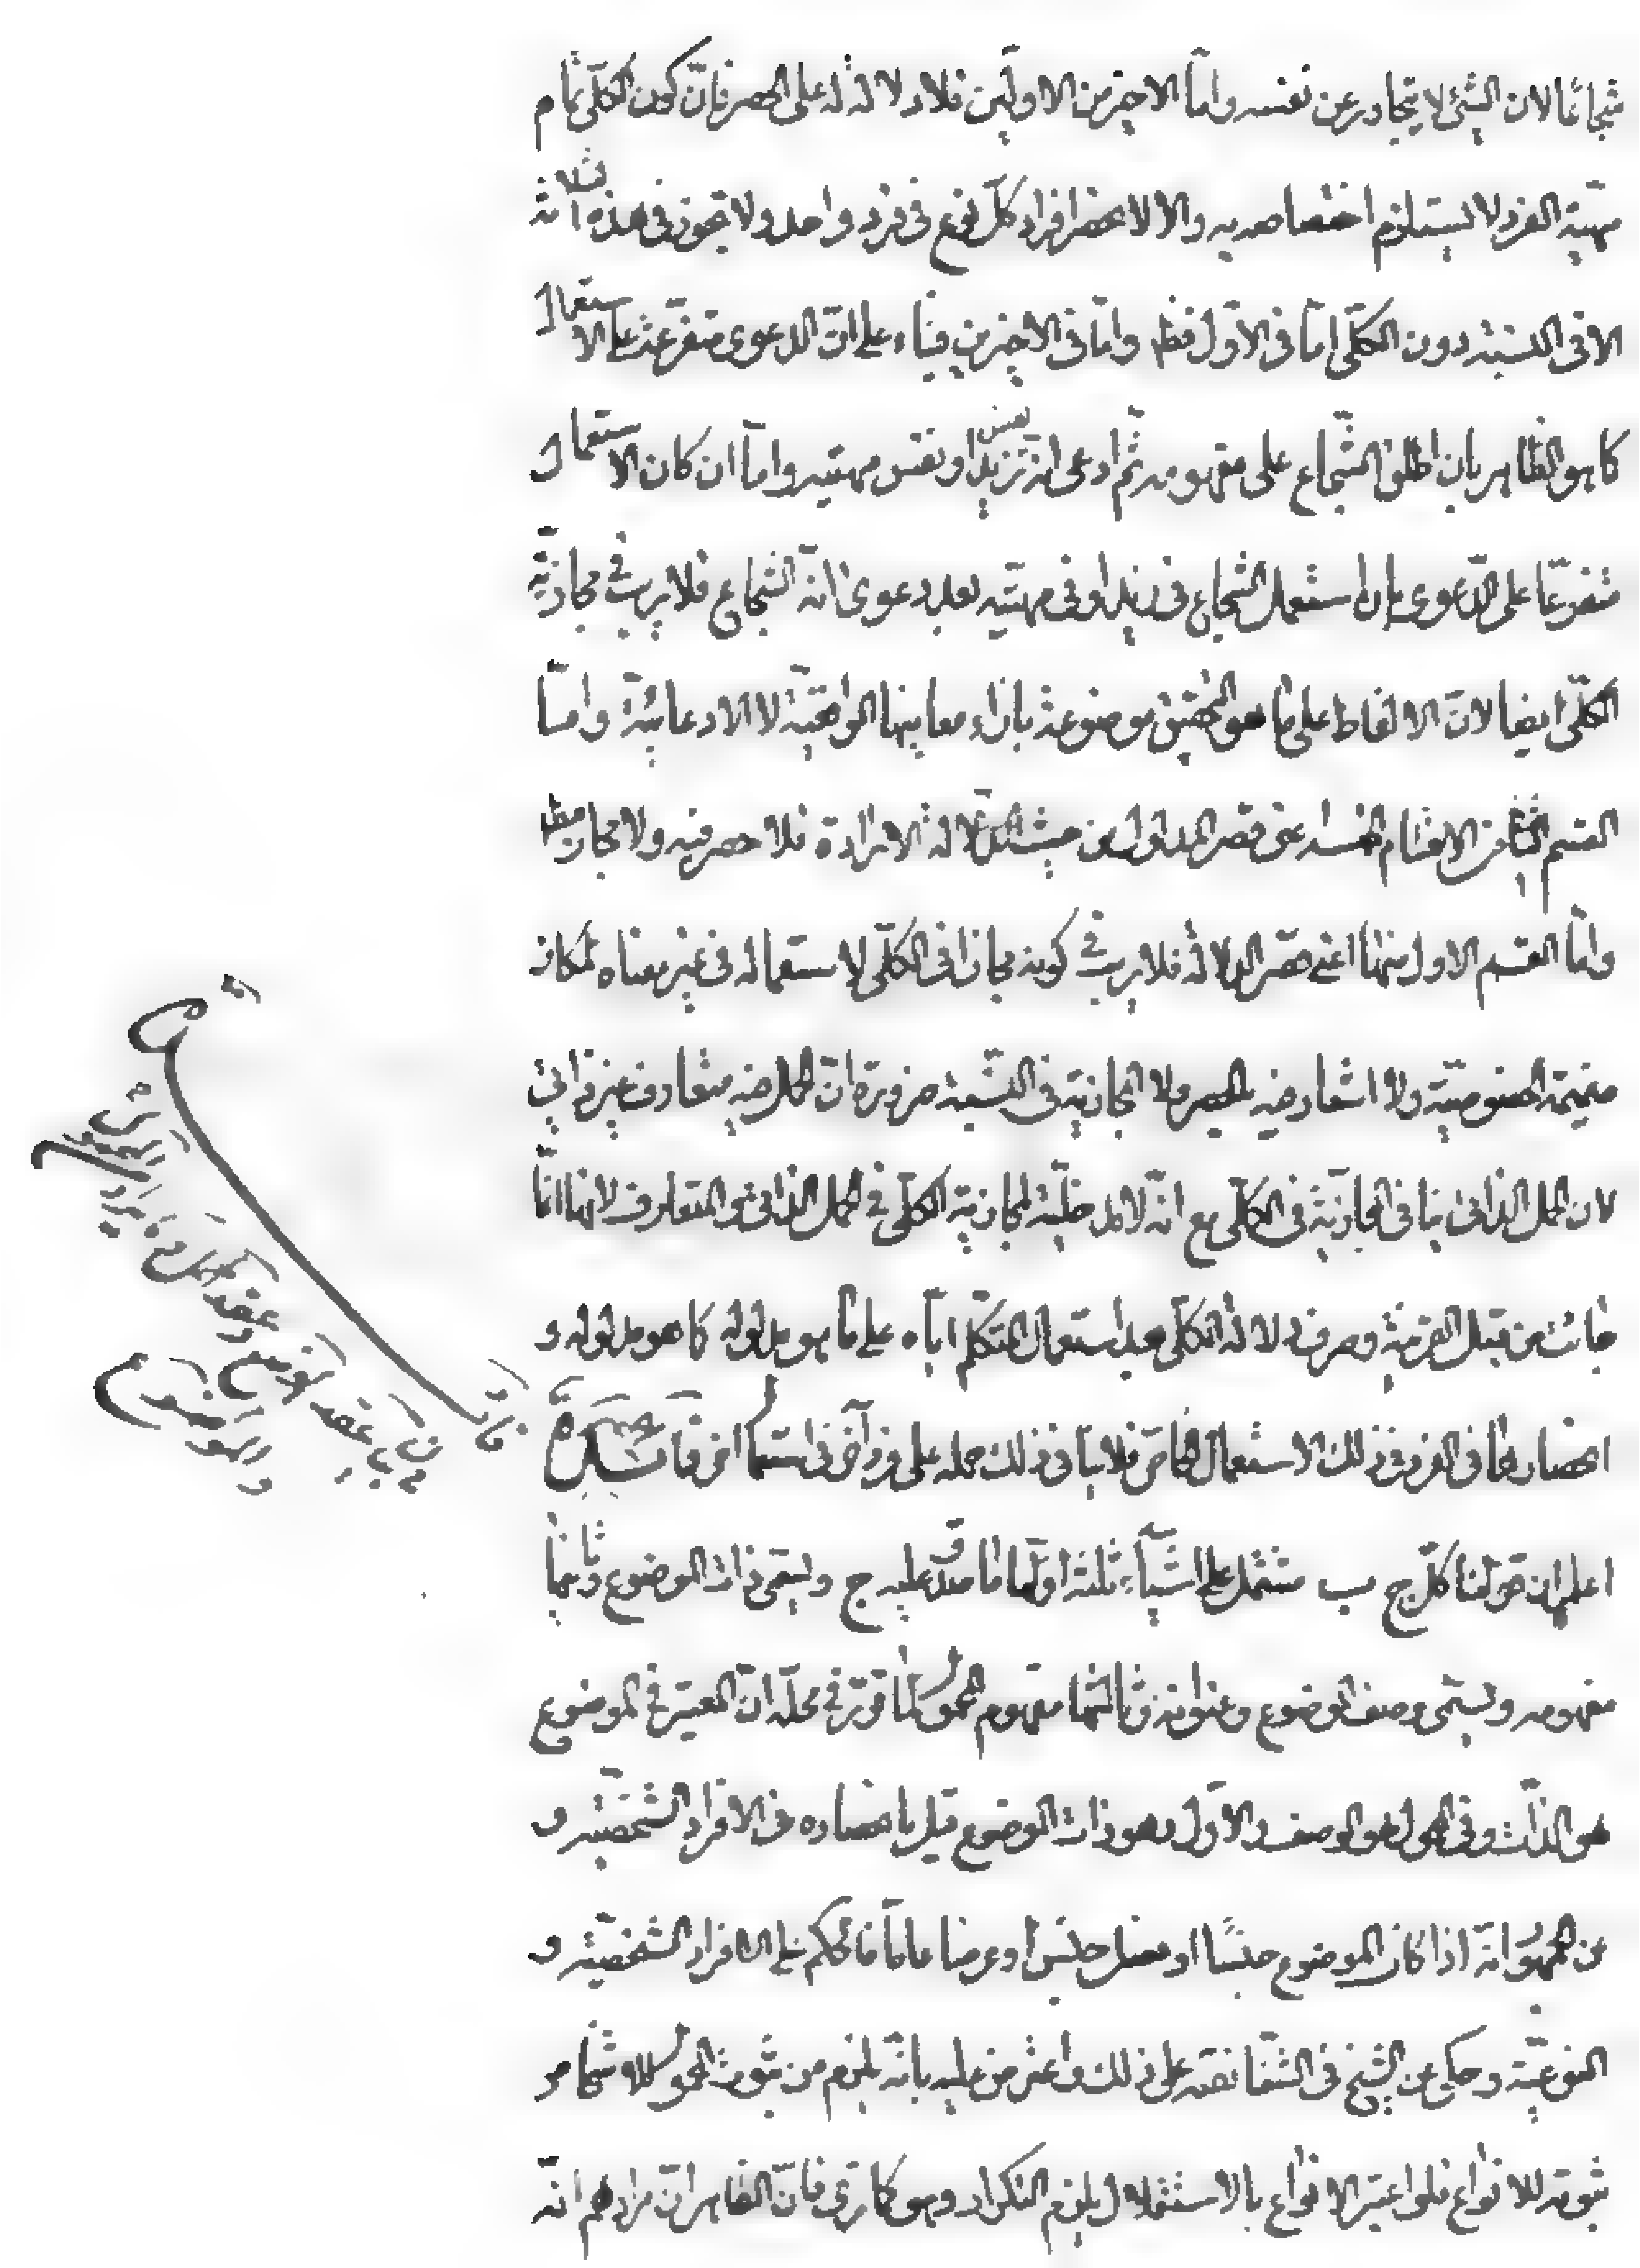 شجاعا لان الشئ لا يتجاوز عن نفسه واما الاخير من الاولين فلا دلالة له على الحصر فان كون الكلى تمام
مهية الفرد لا يستلزم اختصاصه به والا لانحصر افراد كل نوع فى فرد واحد ولا تجوز فى هذه الثلاثة
الا فى النسبة دون الكلى اما فى الاول فظ واما فى الاخيرين فبناء على ان الدعوى متفرعة على الاستعمال
كما هو الظاهر بان اطلق الشجاع على مفهومه ثم ادعى انه نفس زيد او نفس مهيته واما ان كان الاستعمال
متفرعا على الدعوى بان استعمل الشجاع فى زيد او فى مهيته بعد دعوى انه الشجاع فلا ريب فى مجازية
الكلى ايضا لان الالفاظ على ما هو التحقيق موضوعة بازاء معانيها الواقعية لا الادعائية واما
القسم الثانى من الاقسام الخمسة اعنى قصر المدلول من حيث الدلالة الارادة فلا حصر فيه ولا مجاز مط
واما القسم الاول منها اعنى قصر الدلالة فلا ريب فى كونه مجازا فى الكلى لاستعماله فى غير معناه لمكان
ضميمة الخصوصية ولا اشعار فيه بالحصر ولا المجازية فى النسبة ضرورة ان الحمل فيه متعارف غير ذاتى
لان الحمل الذاتى ينافى المجازية فى الكلى مع انه لا مدخلية لمجازية الكلى فى الحمل الذاتى والمتعارف لانها انما
جائت من قبل القرينة وصرف دلالة الكلى بعد استعمال المتكلم اياه على ما هو مدلوله كما هو مدلوله و
انحصارها فى الفرد فى ذلك الاستعمال الخاص فلا ينافى ذلك حمله على فرد آخر فى استعمال اخر فائدة
اعلم ان قولنا كل ج ب مشتمل على اشياء ثلثة اولها ما صدق عليه ج ويسمى ذات الموضوع وثانيها
مفهومه ويسمى وصف الموضوع وعنوانه وثالثها مفهوم المحمول لما قرر فى محله ان المعتبر فى الموضوع
هو الذات وفى المحمول هو الوصف والاول وهو ذات الموضوع قيل بانحصاره فى الافراد الشخصية و
عن الجمهور انه اذا كان الموضوع جنسا او فصل جنس او عرضا عاما فالحكم على الافراد الشخصية و
النوعية وحكى عن الشيخ فى الشفا نصه على ذلك واعترض عليه بانه يلزم من ثبوت المحمول للاشخاص
ثبوته للانواع فلو اعتبر الانواع بالاستقلال يلزم التكرار وهو كما ترى فان الظاهر ان مرادهم انه
فى بيان عقد الوضع و عقد الحمل
والموضوع